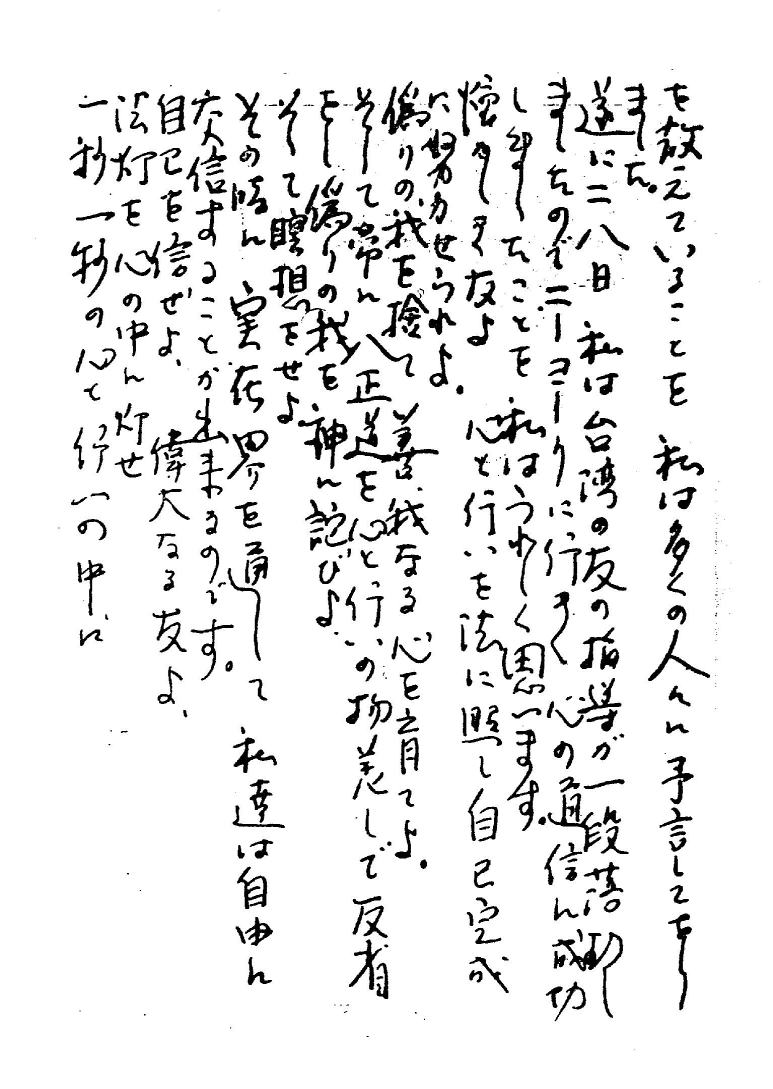 を教えていることを 私は多くの人々に予言しており
ました。
遂に二八日 私は台湾の友の指導が一段落致し
ましたのでニューヨークに行きく 心の通信に成功
しましたことを 私はうれしく思います。
心と行いを法に照し自己完成
に努力せられよ。
偽りの我を捨て 善我なる心を育てよ。
そして常に八正道を心と行いの物差しで反省
をし 偽りの我を神に詑びよ
そして瞑想をせよ
その時に 実在界を通して 私達は自由に
交信することが出来るのです。
自己を信ぜよ、 偉大なる友よ、
法灯を心の中に灯せ
一秒一秒の心と行いの中に